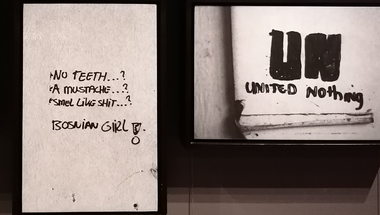 NO TEETH...?
A MUSTACHE...?
SMEL LIKE SHIT...?
BOSNIAN GIRL!
UN
UNITED NOTHING